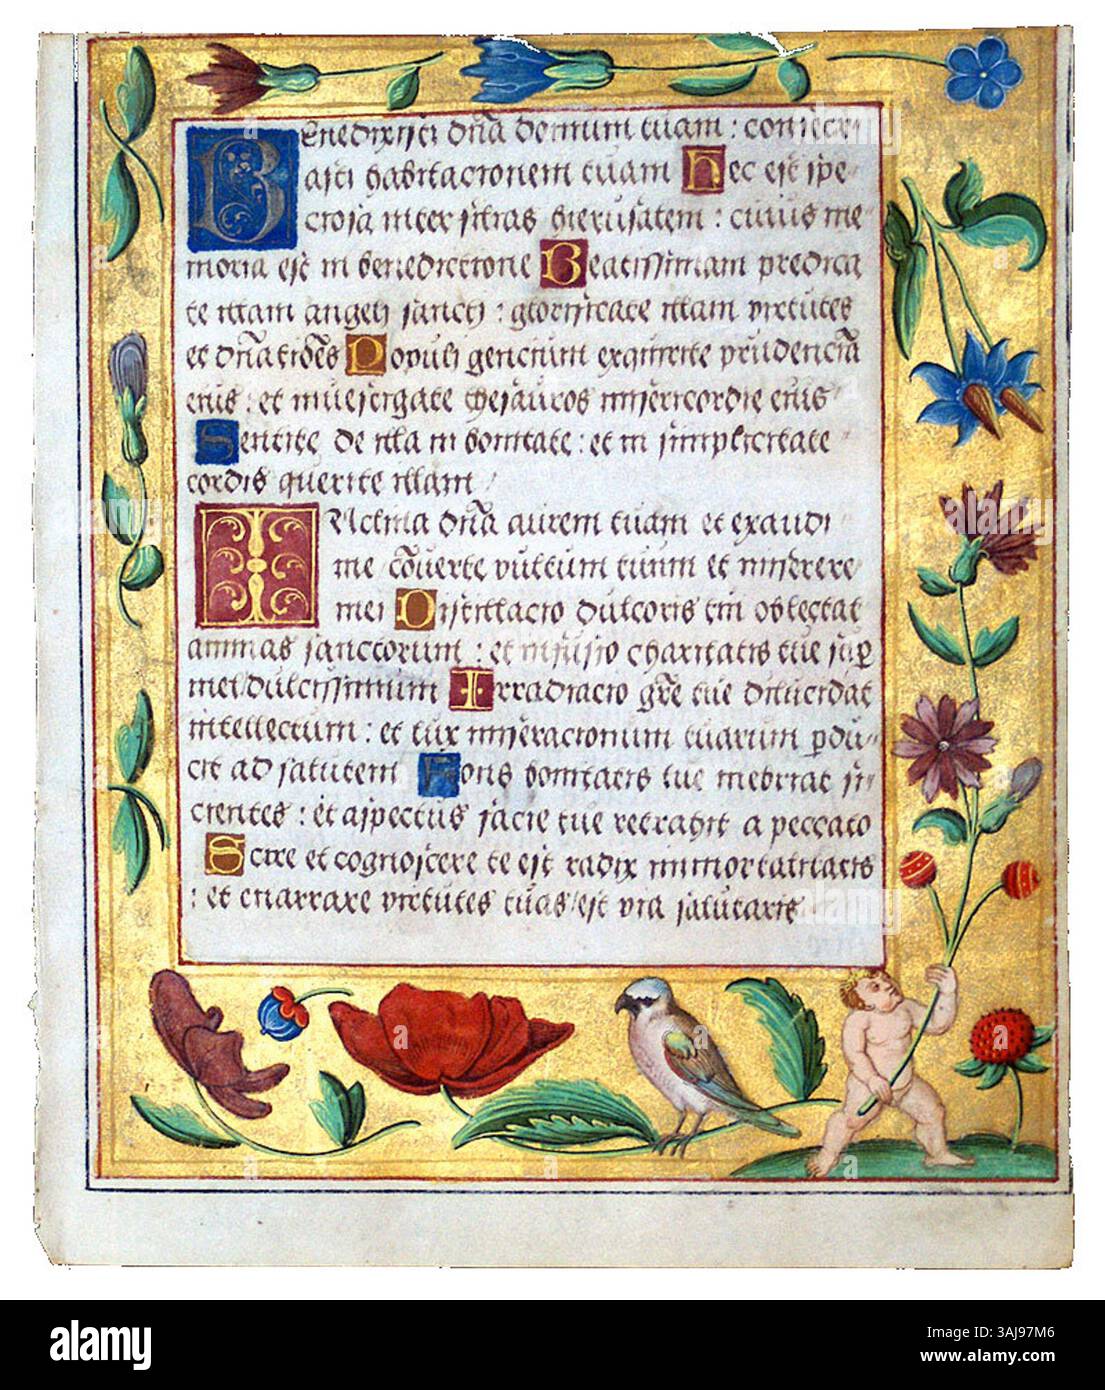 Benedixisti dn̄a domum tuam : consecra-
asti habitacionem tuam Hec est spe-
ciosa inter filias hierusalem : cuius me-
moria est in benedictione Beatissimam predica
te illam angeli sancti : glorificate illam virtutes
et dn̄atiōes Populi gencium exquirite prudenciā
eius : et inuestigate thesauros misericordie eius
Sentite de illa in bonitate : et in simplicitate
cordis querite illam
INclina dn̄a aurem tuam et exaudi
me cōuerte vultum tuum et miserere
mei Distillacio dulcoris tui oblectat
animas sanctorum : et infusio charitatis tue suꝑ
mel dulcissimum Irradiacio grē tue dilucidat
intellectum : et lux miseracionum tuarum ꝑdu-
cit ad salutem Fons bonitatis tue inebriat si-
cientes : et aspectus facie tue retrahit a peccato
Scire et cognoscere te est radix immortalitatis
: et enarrare virtutes tuas est via salutaris
alamy
Image ID: 3AJ97M6
www.alamy.com